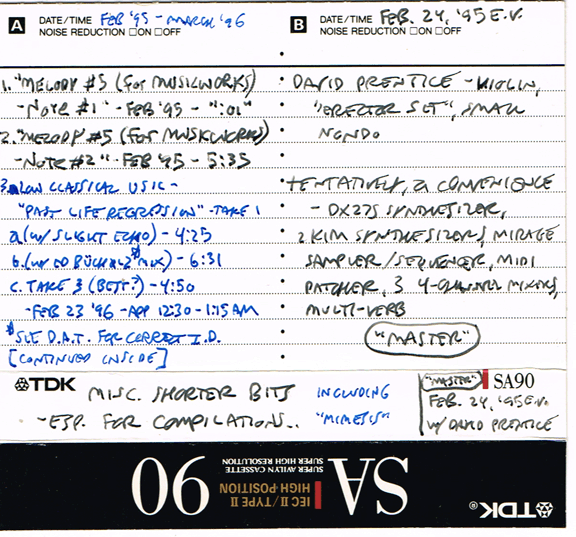 A DATE/TIME FEB '95 - MARCH '96
NOISE REDUCTION ☐ON ☐OFF
1. "MELODY #5 (FOR MUSICWORKS)
- NOTE #1" - FEB '95 - ":01"
2. "MELODY #5 (FOR MUSICWORKS)
- NOTE #2" - FEB '95 - 5:35
3. LOW CLASSICAL USIC -
"PAST LIFE REGRESSION" - TAKE 1
a. (W/ SLIGHT ECHO) - 4:25
b. (W/ ED BÜCHOLZ MIX) - 6:31
c. TAKE 3 (BEST?) - 4:50
- FEB 23 '96 - APP 12:30 - 1:15 AM
SEE D.A.T. FOR CORRECT I.D.
[CONTINUED INSIDE]
B DATE/TIME FEB. 24, '95 E.V.
NOISE REDUCTION ☐ON ☐OFF
DAVID PRENTICE - VIOLIN,
"ERECTOR SET", SMALL
NONDO
TENTATIVELY, A CONVENIENCE
- DX27S SYNTHESIZER,
2 KIM SYNTHESIZERS, MIRAGE
SAMPLER/SEQUENCER, MIDI
PATCHER, 3 4-CHANNEL MIXERS,
MULTI-VERB
"MASTER"
TDK MISC. SHORTER BITS INCLUDING
- ESP. FOR COMPILATIONS.. "MIMESIS"
"MASTER" SA90
FEB. 24, '95 E.V.
W/ DAVID PRENTICE
TDK®
SA 90
IEC II/TYPE II
HIGH POSITION
SUPER AVILYN CASSETTE
SUPER HIGH RESOLUTION